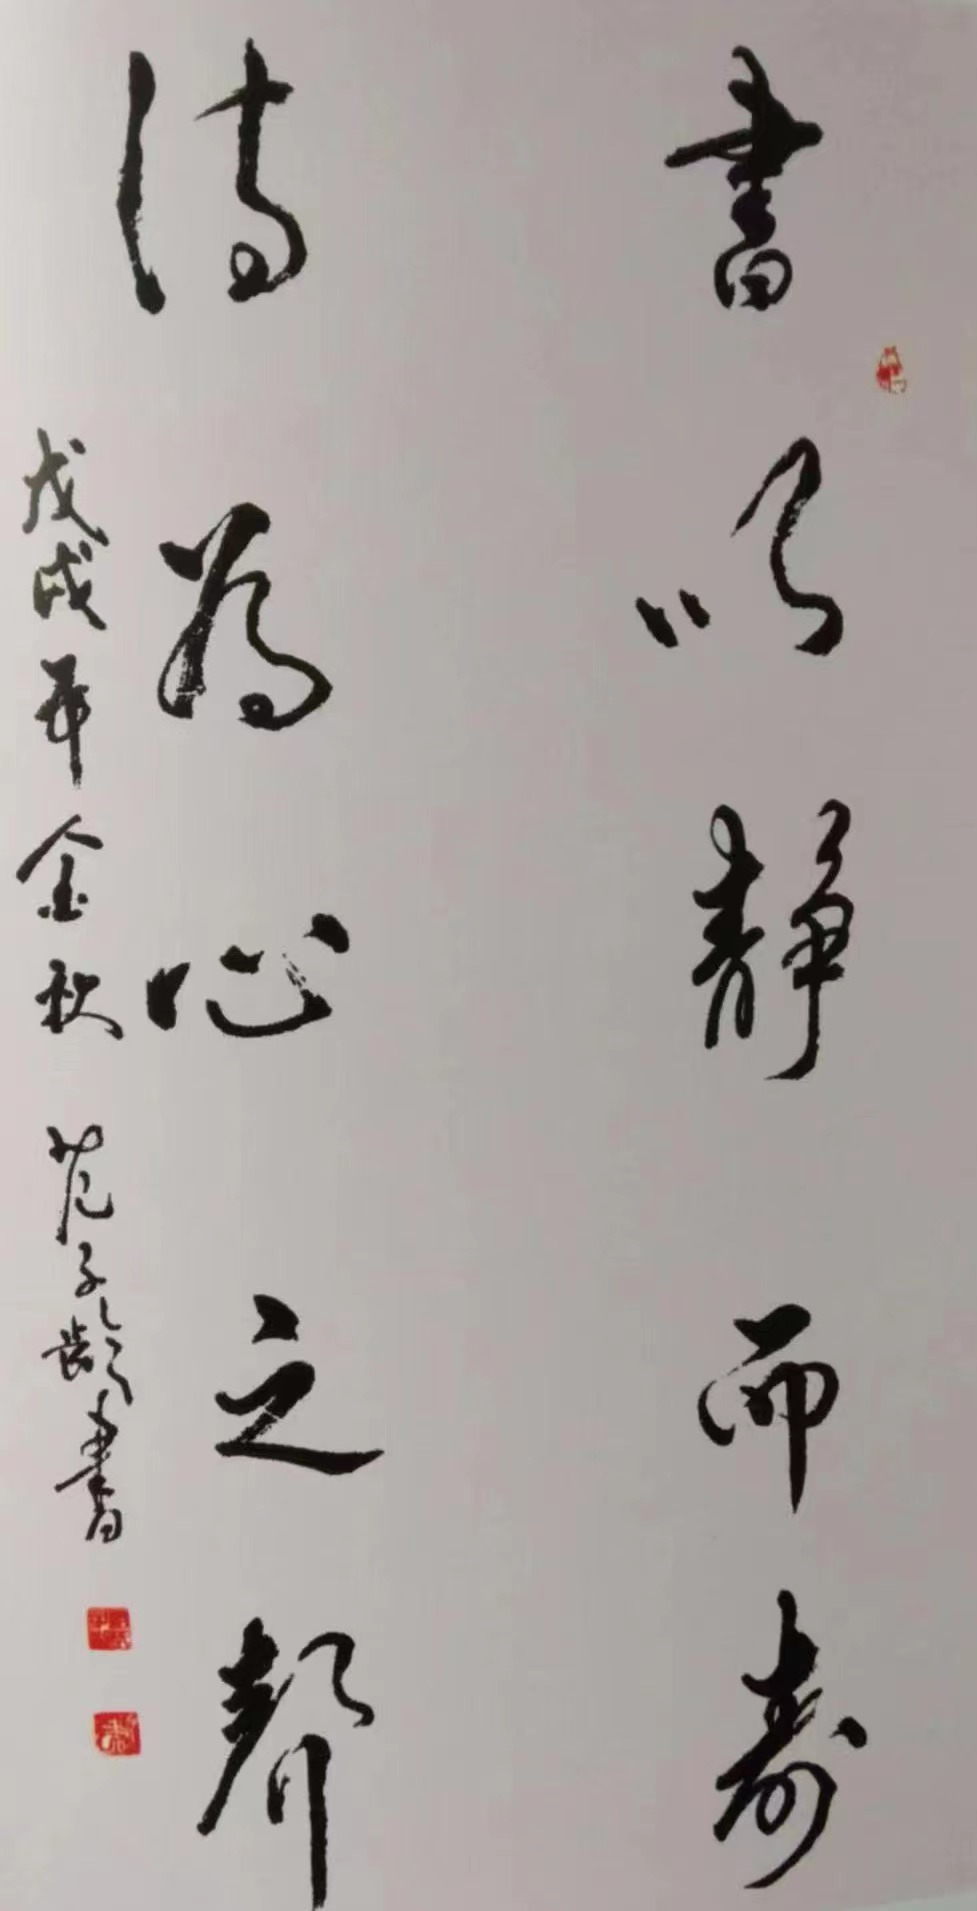 書以静而壽
詩為心之聲
戊戌年金秋 范子龄書